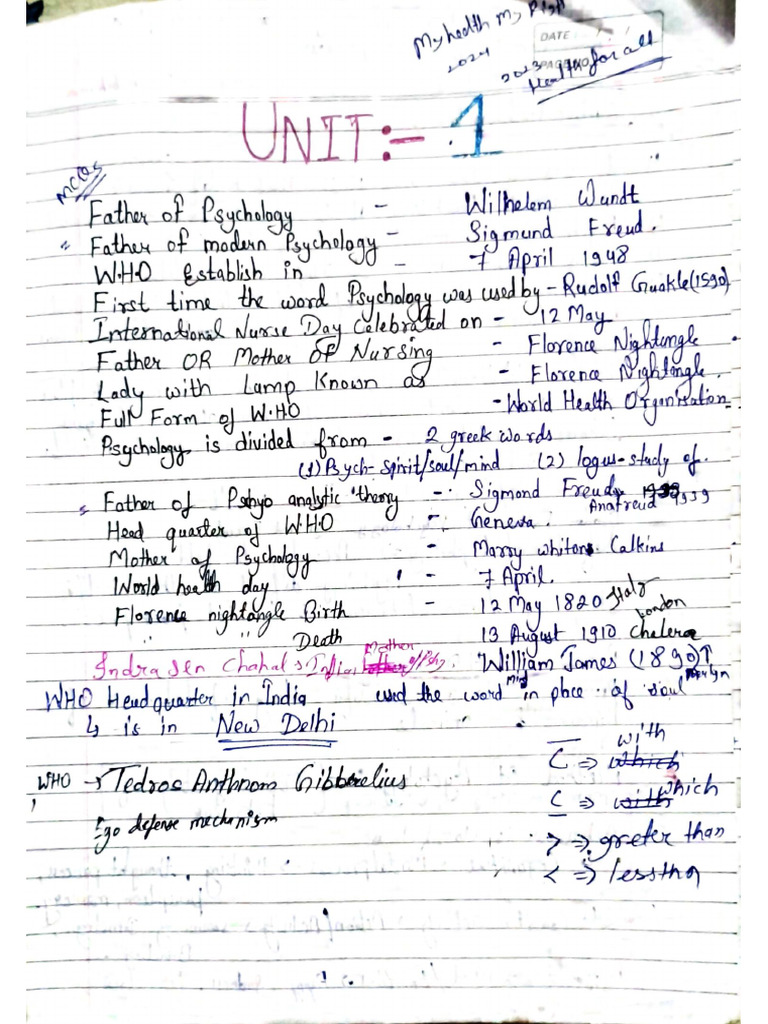 My health My Right
2024
DATE
PAGE NO.
2023
Health for all
UNIT:- 1
MCQs
Father of Psychology - Wilhelem Wundt
" Father of modern Psychology - Sigmund Freud.
W.H.O Establish in - 7 April 1948
First time the word Psychology was used by - Rudolf Guakle(1590)
International Nurse Day Celebrated on - 12 May
Father OR Mother of Nursing - Florence Nightengle
Lady with Lamp Known as - Florence Nightengle.
Full Form of W.H.O - World Health Organisation
Psychology is divided from - 2 greek words
(1) Psych- spirit/soul/mind (2) logus-study of.
Father of Pshyo analytic theory - Sigmond Freud 1939
Anafreud 1939
Head quarter of W.H.O - Geneva.
Mother of Psychology - Marry whitons Calkins
World health day - 7 April.
Florence nightangle Birth - 12 May 1820 Italy
" " Death 13 August 1910 London
Chalera
Indra sen Chahal : India Mother of Psy. William James (1890)↑
WHO Headquarter in India used the word mind in place of soul
↳ is in New Delhi
WHO → Tedros Anthnom Gibbrelius
Ego defense mechanism
C ⇒ which with
C ⇒ with which
> ⇒ greter than
< ⇒ lesstha